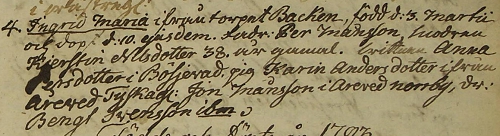 4. Ingrid Maria ifrån torpet Backen, född d: 3. Martii
och döpt d. 10. ejusdem. Fadr: Per Månsson, modren
Kjerstin Nilsdotter 38. år gammal. Anna
Persdotter i pig Karin Andersdotter ifrån
Areved Jon Månsson i Areved norby, dr:
Bengt Svensson ibm
1793